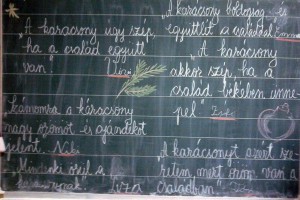 „A karácsony úgy szép,
ha a család együtt
van"
Számomra a karácsony
nagy örömöt és ajándékot
jelent. Niki
„Mindenki örül a
Liza
„A karácsony boldogság és
együttlét a családdal Emma
„A karácsony
akkor szép, ha a
család békében ünne-
pel"
„A karácsonyt azért sze-
retem, mert öröm van a
családban"